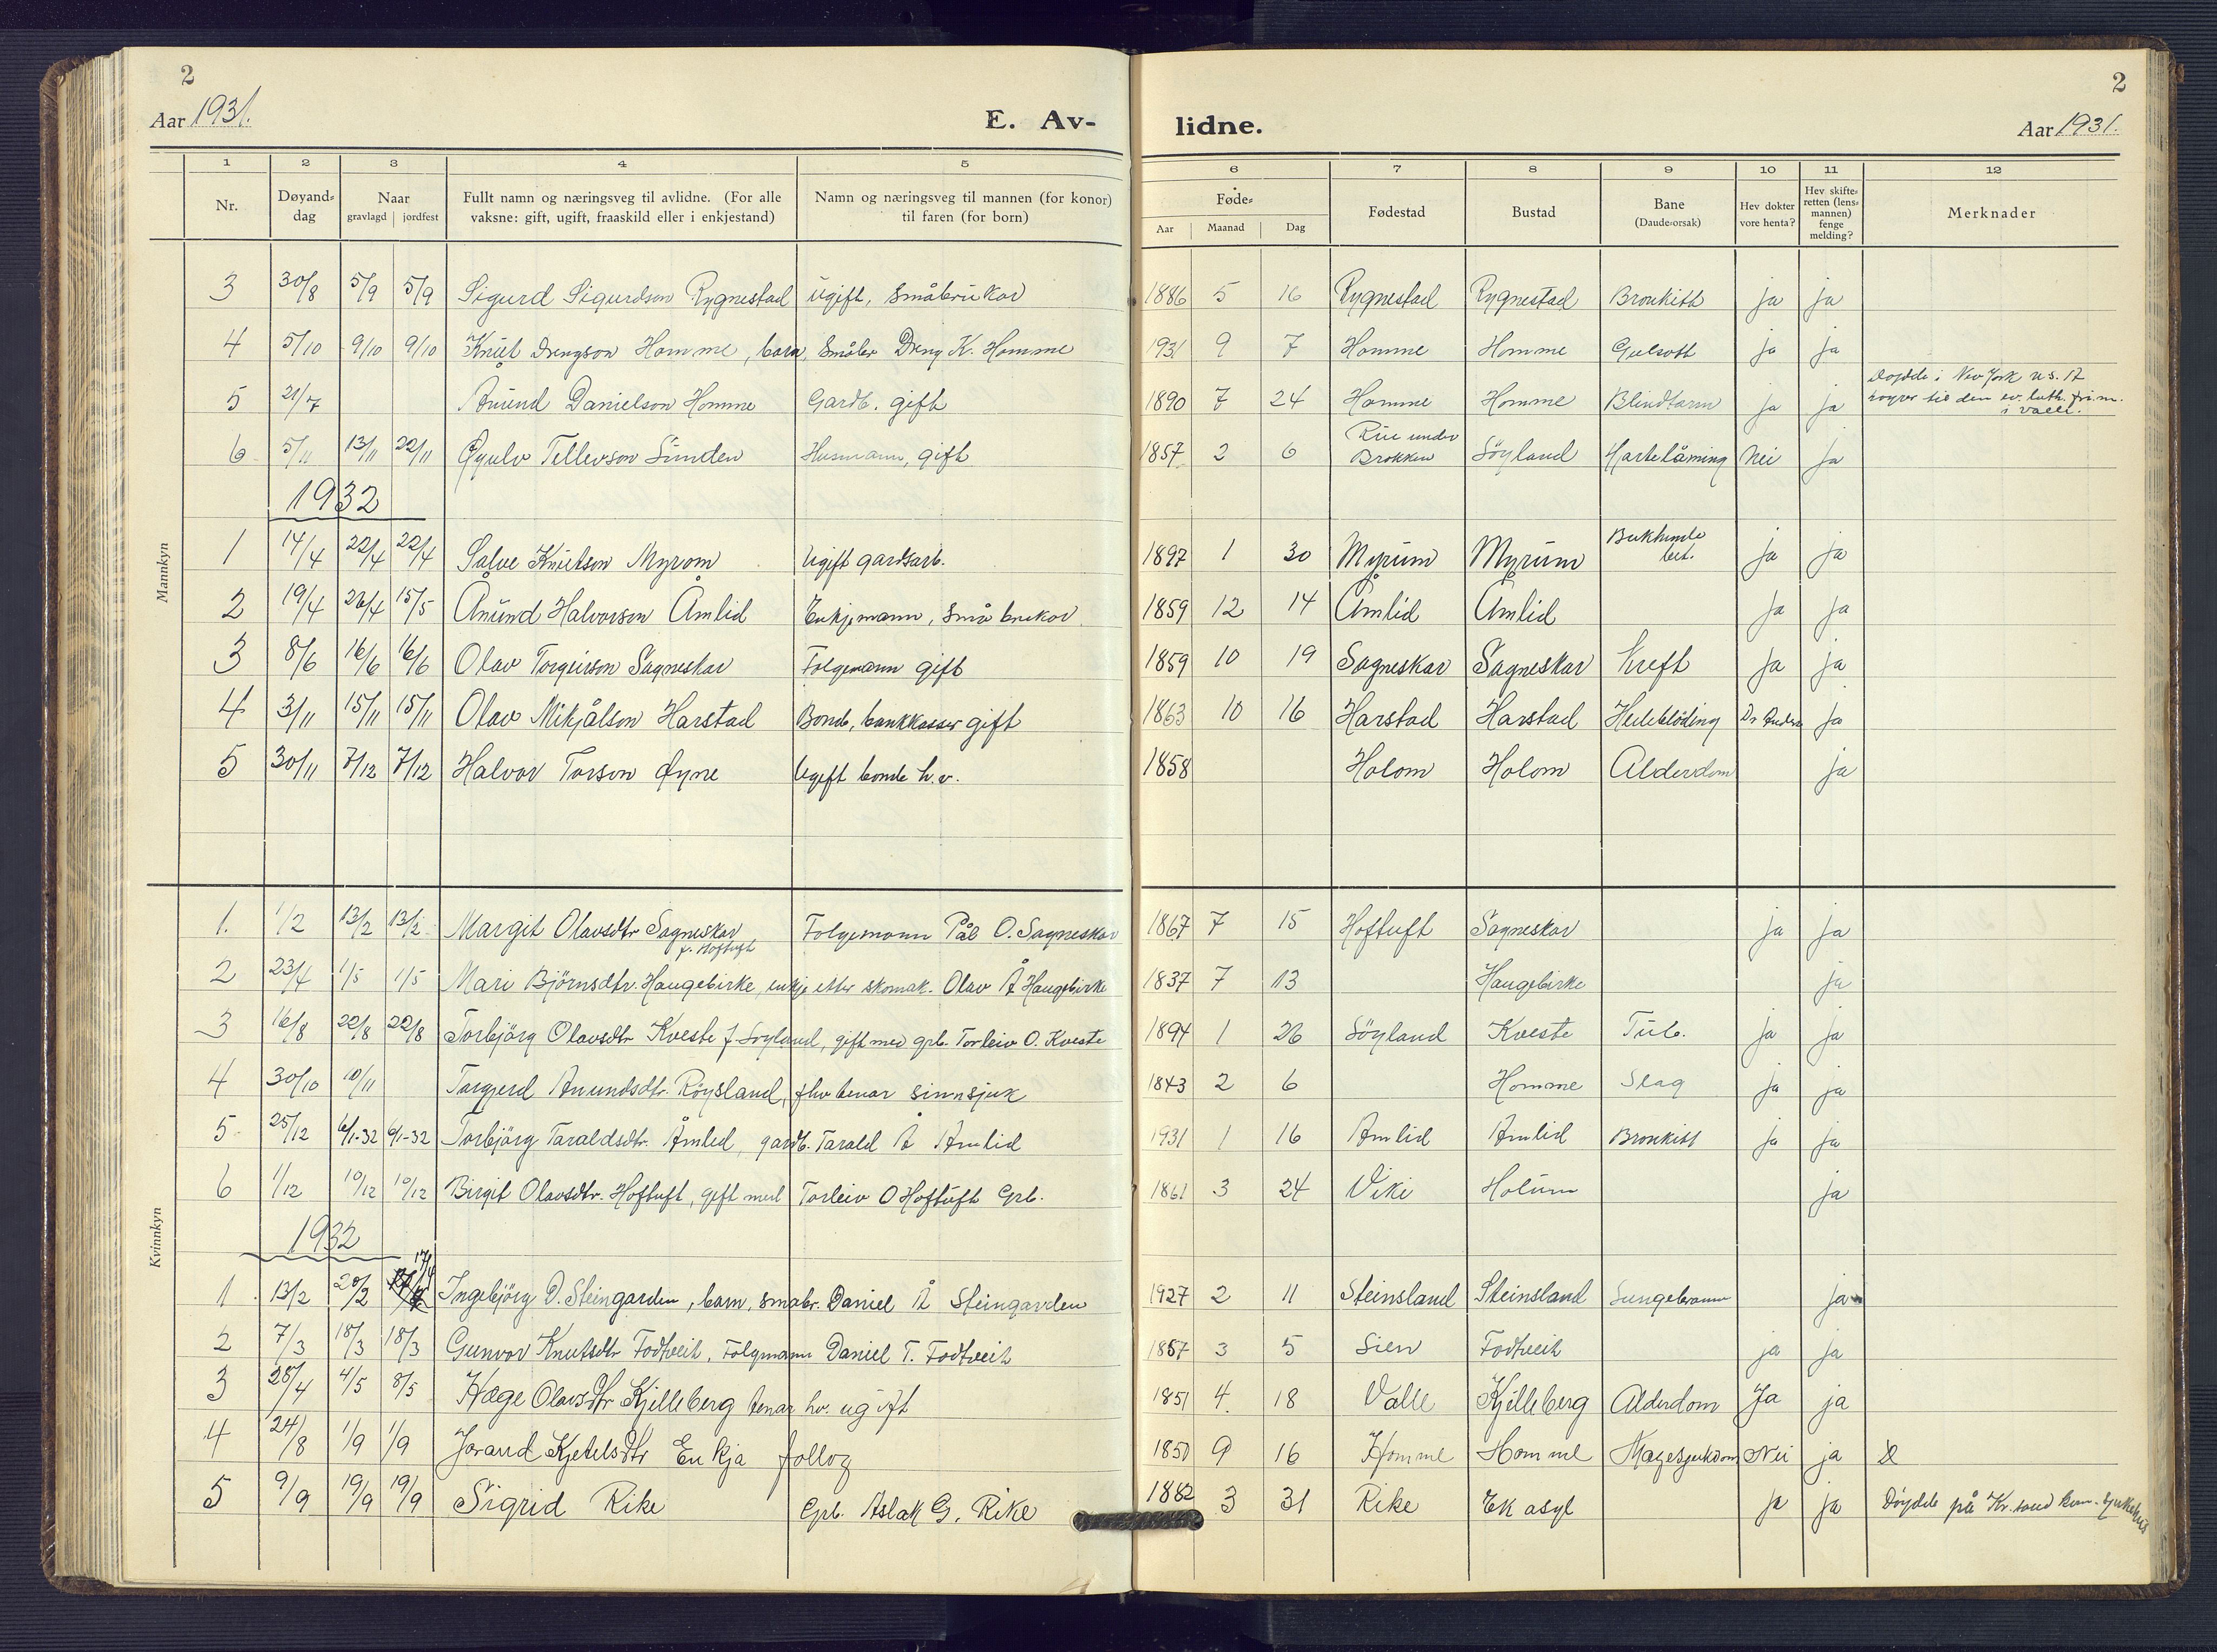 2
Aar 1931.
E. Av-
lidne.
Aar 1931.
2
1 2 3 4 5 6 7 8 9 10 11 12
Nr. Døyand-dag Naar gravlagd jordfest Fullt namn og næringsveg til avlidne. (For alle vaksne: gift, ugift, fraaskild eller i enkjestand) Namn og næringsveg til mannen (for konor) til faren (for born) Føde- Aar Maanad Dag Fødestad Bustad Bane (Daude-orsak) Hev dokter vore henta? Hev skifte-retten (lens-mannen) fenge melding? Merknader
Mannkyn
3 30/8 5/9 5/9 Sigurd Sigurdson Rygnestad ugift, småbrukar 1886 5 16 Rygnestad Rygnestad Bronkitt ja ja
4 5/10 9/10 9/10 Knut Drengson Homme, barn, Småbr Dreng K. Homme 1931 9 7 Homme Homme Gulsott ja ja
5 21/7 Anund Danielson Homme Gardb. gift 1890 7 24 Homme Homme Blindtarm ja ja Døydde i New York U.S.A høyrer til den ev. luth. frim. i Valle.
6 5/11 13/11 22/11 Øyulv Tellevson Sunden Husmann, gift 1857 2 6 Rue under Brokken Söyland Hartelåming Nei ja
1932
1 14/4 22/4 22/4 Salve Knutson Myrom Ugift gardsarb. 1897 1 30 Myrum Myrum Bukhinde bet. ja ja
2 19/4 26/4 15/5 Ånund Halvorson Åmlid Enkjemann, Småbrukar 1859 12 14 Åmlid Åmlid ja ja
3 8/6 16/6 16/6 Olav Torgeirson Sagneskar Folgemann gift 1859 10 19 Sagneskar Sagneskar Kreft ja ja
4 3/11 15/11 15/11 Olav Mikjålson Harstad Bonde, bankkasser gift 1863 10 16 Harstad Harstad Heileblöding Dr ja
5 30/11 7/12 7/12 Halvor Torson Øyne Ugift bonde h.v. 1858 Holom Holom Alderdom ja
Kvinnkyn
1. 1/2 13/2 13/2 Margit Olavsdtr Sagneskar f. Hoftuft Folgemann Pål O. Sagneskar 1867 7 15 Hoftuft Sagneskar ja ja
2 23/4 1/5 1/5 Mari Björnsdtr. Haugebirke, enkje etter skomak. Olav Å Haugebirke 1837 7 13 Haugebirke ja
3 16/8 22/8 22/8 Torbjörg Olavsdtr Kveste f. Söyland, gift med grb. Torleiv O. Kveste 1894 1 26 Söyland Kveste Tub. ja ja
4 30/10 10/11 Torgjerd Anundsdtr. Röysland, fhv tenar sinnsjuk 1843 2 6 Homme Slag ja ja
5 25/12 6/1-32 6/1-32 Torbjörg Taraldsdtr. Åmlid, gardb. Tarald Å Åmlid 1931 1 16 Åmlid Åmlid Bronkitt ja ja
6 1/12 10/12 10/12 Birgit Olavsdtr. Hoftuft, gift med Torleiv O Hoftuft Grb. 1861 3 24 Viki Holum ja
1932
1. 13/2 20/2 17/4 Ingebjörg D. Steingarden, barn, småbr. Daniel Å Steingarden 1927 2 11 Steinsland Steinsland Lungebrann ja
2 7/3 18/3 18/3 Gunvor Knutsdtr Fodtveit, Folgmann Daniel T. Fodtveit 1857 3 5 Lien Fodtveit ja ja
3 28/4 4/5 8/5 Hæge Olavsdtr Kjelleberg tenar hv. ugift 1851 4. 18 Valle Kjelleberg Alderdom Ja ja
4 24/8 1/9 1/9 Jorand Kjetelsdtr Enkja follog 1850 9 16 Homme Homme Magesjukdom Nei ja
5 9/9 19/9 19/9 Sigrid Rike Grb. Aslak G. Rike 1882 3 31 Rike Ek asyl ja ja Döydde på Kr.sand kom. sjukehus